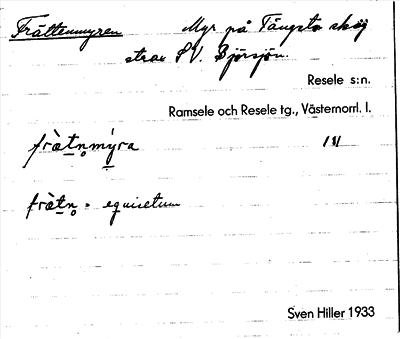 Frättenmyren Myr på Tängsta skog
strax SV. Björsjön.
Resele s:n.
Ramsele och Resele tg., Västernorrl. l.
fràtn̥mýra
fràtn̥ = equisetum
Sven Hiller 1933